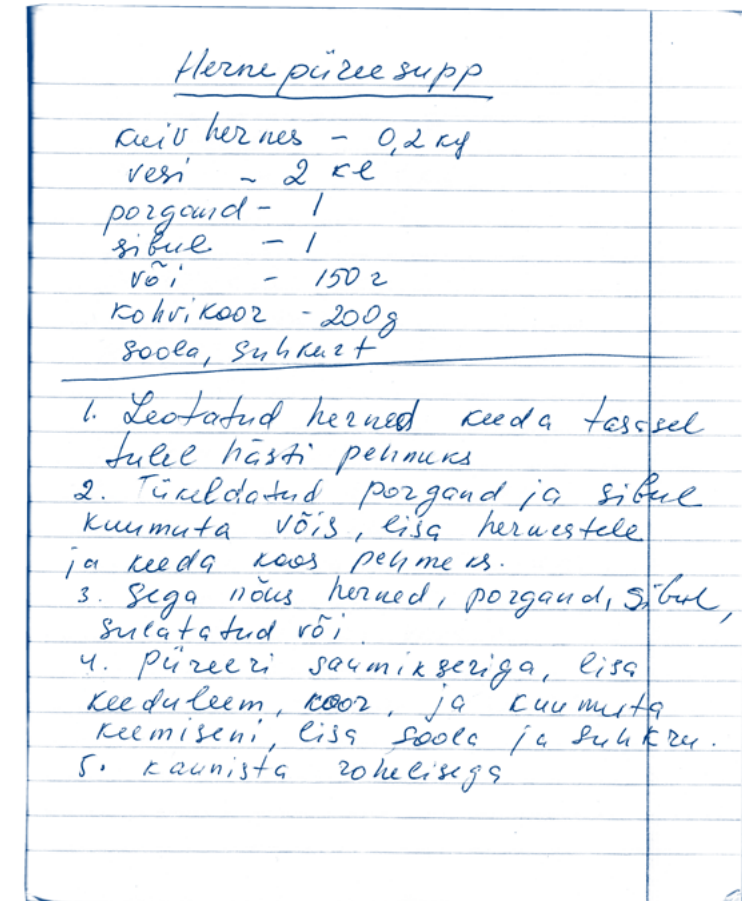 Herne püree supp
kuiv hernes - 0,2 kg
vesi - 2 kl
porgand - 1
sibul - 1
või - 150 g
kohvikoor - 200g
soola, suhkurt
1. Leotatud herned keeda tasasel
tulel hästi pehmuks
2. Tükeldatud porgand ja sibul
kuumuta võis, lisa hernestele
ja keeda koos pehmeks.
3. Sega nõus herned, porgand, sibul,
sulatatud või.
4. Püreeri saumikseriga, lisa
keeduleem, koor, ja kuumuta
keemiseni, lisa soola ja suhkru.
5. Kaunista rohelisega